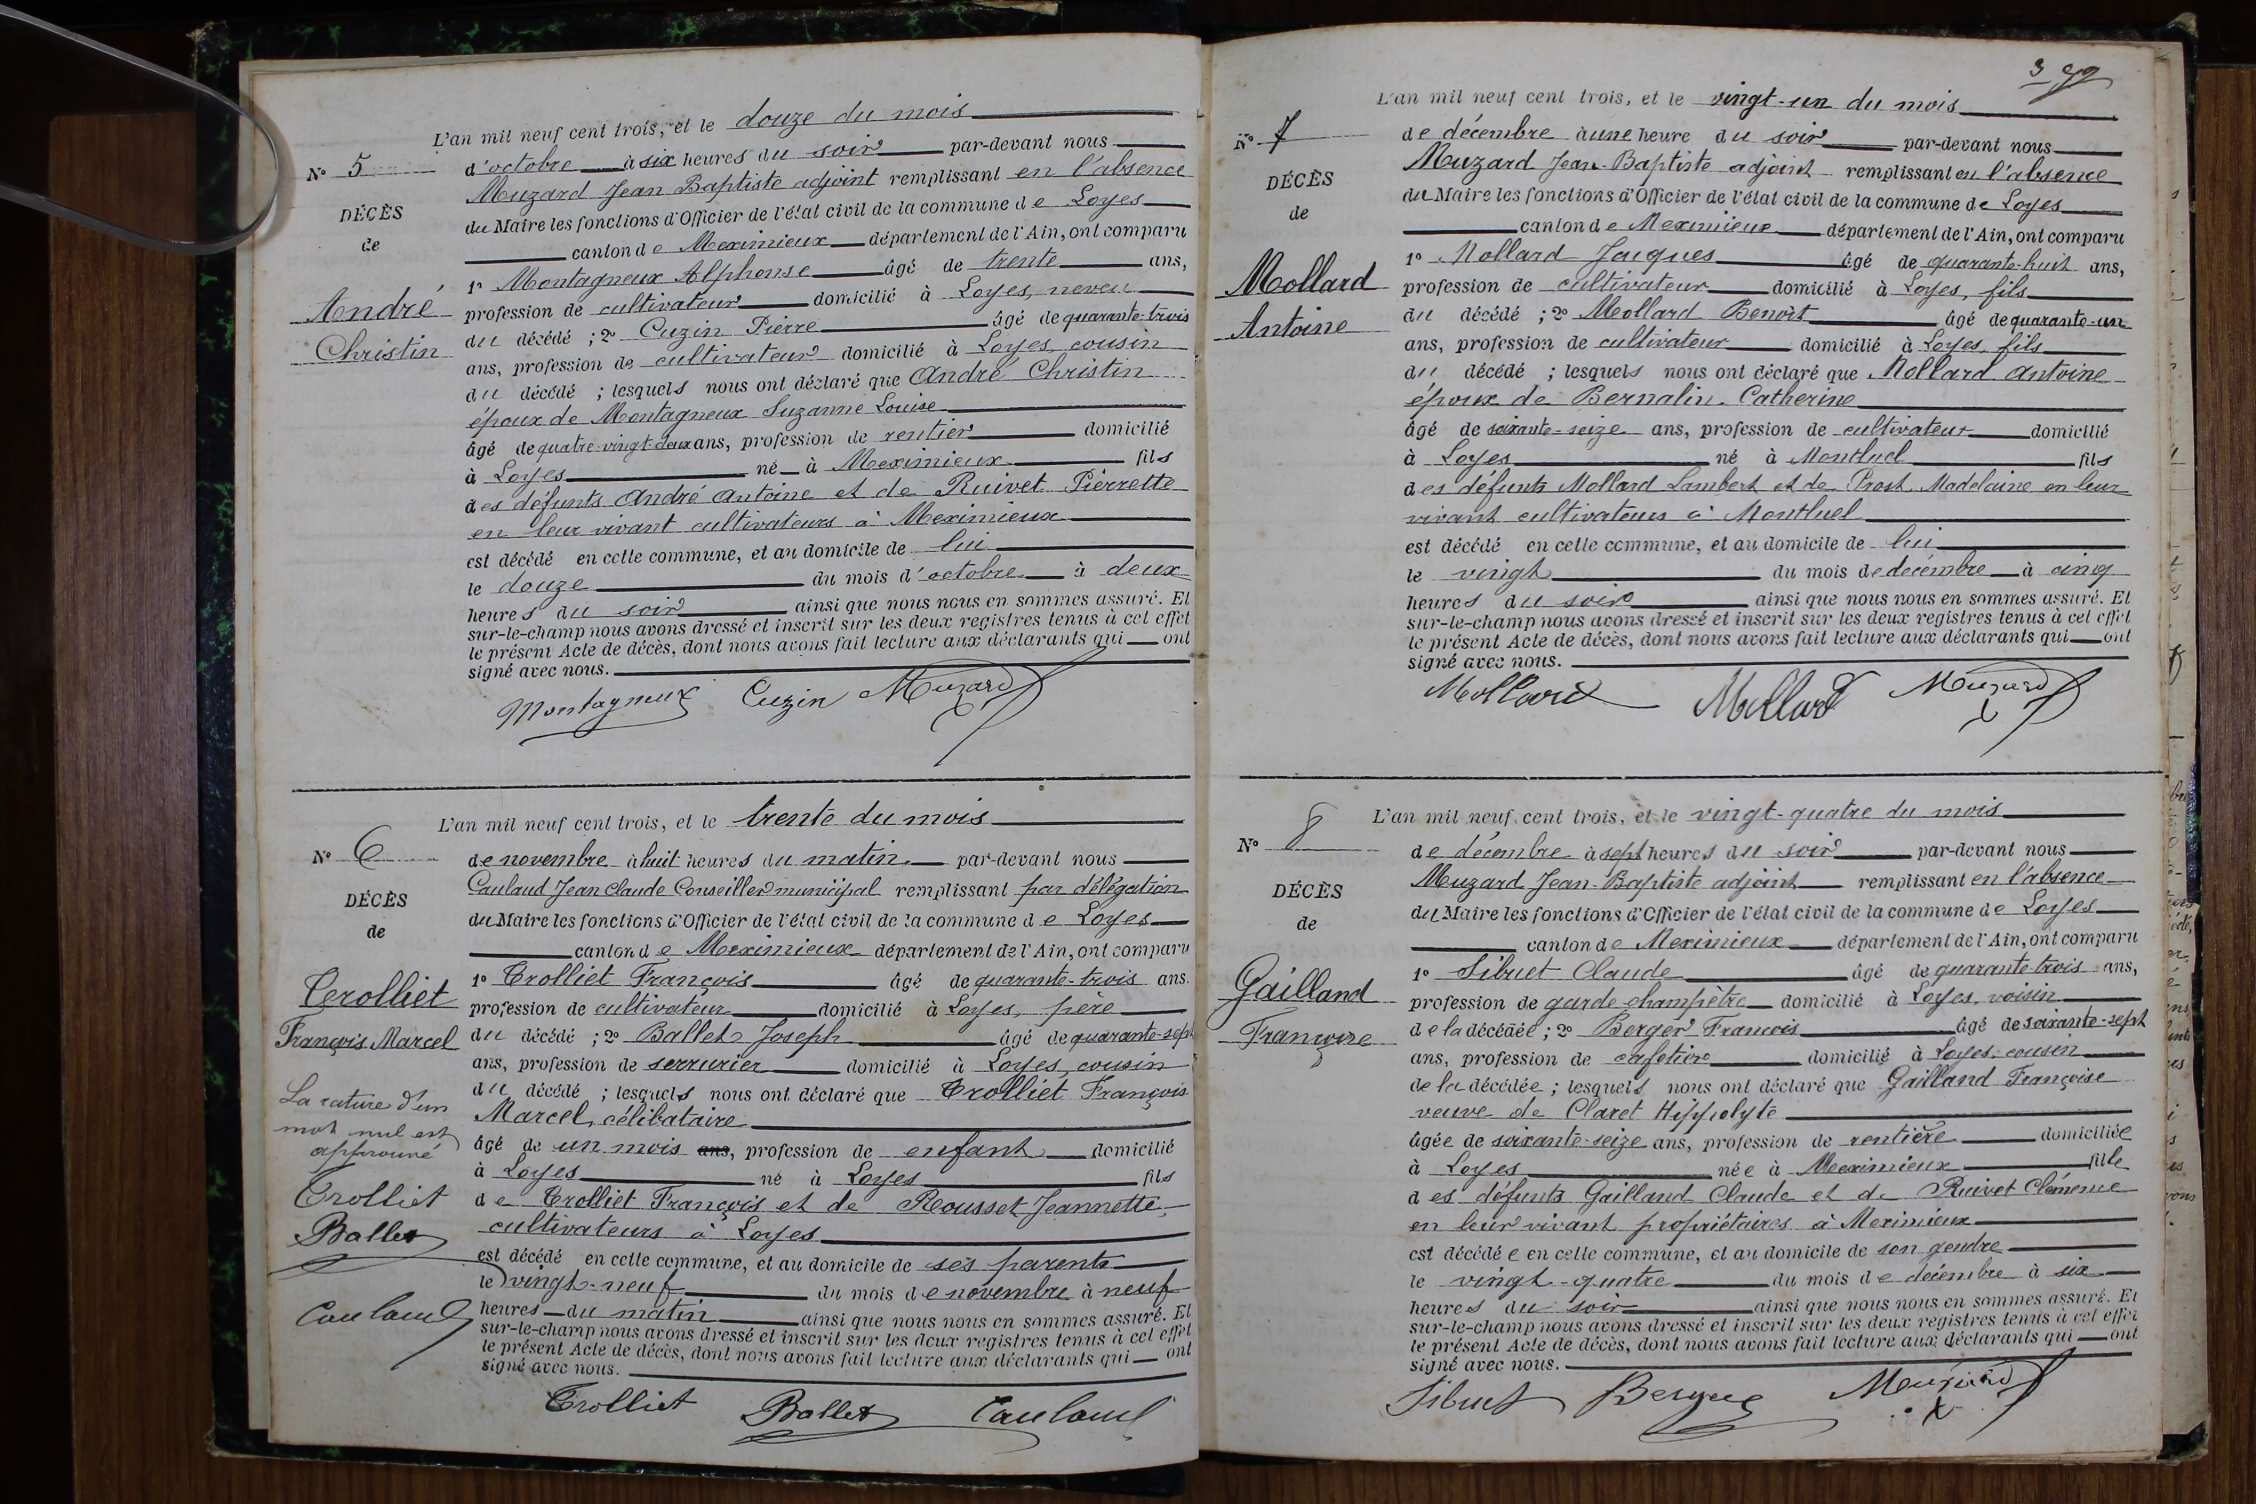 L'an mil neuf cent trois, et le douze du mois
N° 5
d'octobre à six heures du soir par-devant nous
Muzard Jean Baptiste adjoint remplissant en l'absence
DÉCÈS
du Maire les fonctions d'Officier de l'état civil de la commune de Loyes
de
canton de Meximieux département de l'Ain, ont comparu
1° Montagneux Alphonse âgé de trente ans,
André
profession de cultivateur domicilié à Loyes, neveu
du décédé ; 2° Cuzin Pierre âgé de quarante-trois
Christin
ans, profession de cultivateur domicilié à Loyes, cousin
du décédé ; lesquels nous ont déclaré que André Christin
époux de Montagneux Suzanne Louise
âgé de quatre-vingt-deux ans, profession de rentier domicilié
à Loyes né à Meximieux fils
des défunts André Antoine et de Ruivet Pierrette
en leur vivant cultivateurs à Meximieux
est décédé en cette commune, et au domicile de lui
le douze du mois d'octobre à deux
heures du soir ainsi que nous nous en sommes assuré. Et
sur-le-champ nous avons dressé et inscrit sur les deux registres tenus à cet effet
le présent Acte de décès, dont nous avons fait lecture aux déclarants qui ont
signé avec nous.
Montagneux Cuzin Muzard
L'an mil neuf cent trois, et le trente du mois
N° 6
de novembre à huit heures du matin par-devant nous
Caulaud Jean Claude Conseiller municipal remplissant par délégation
DÉCÈS
du Maire les fonctions d'Officier de l'état civil de la commune de Loyes
de
canton de Meximieux département de l'Ain, ont comparu
1° Trolliet François âgé de quarante-trois ans.
Trolliet
profession de cultivateur domicilié à Loyes, père
François Marcel
du décédé ; 2° Ballet Joseph âgé de quarante-sept
ans, profession de serrurier domicilié à Loyes, cousin
du décédé ; lesquels nous ont déclaré que Trolliet François
Marcel, célibataire
La rature d'un
mot nul est
approuvé
âgé de un mois ans, profession de enfant domicilié
à Loyes né à Loyes fils
Trolliet
de Trolliet François et de Rousset Jeannette,
Ballet
cultivateurs à Loyes
est décédé en cette commune, et au domicile de ses parents
le vingt-neuf du mois de novembre à neuf
Caulaud
heures du matin ainsi que nous nous en sommes assuré. Et
sur-le-champ nous avons dressé et inscrit sur les deux registres tenus à cet effet
le présent Acte de décès, dont nous avons fait lecture aux déclarants qui ont
signé avec nous.
Trolliet Ballet Caulaud
3
L'an mil neuf cent trois, et le vingt-un du mois
N° 7
de décembre à une heure du soir par-devant nous
Muzard Jean-Baptiste adjoint remplissant en l'absence
DÉCÈS
du Maire les fonctions d'Officier de l'état civil de la commune de Loyes
de
canton de Meximieux département de l'Ain, ont comparu
1° Mollard Jacques âgé de quarante-huit ans,
Mollard
profession de cultivateur domicilié à Loyes, fils
du décédé ; 2° Mollard Benoit âgé de quarante-un
Antoine
ans, profession de cultivateur domicilié à Loyes, fils
du décédé ; lesquels nous ont déclaré que Mollard Antoine
époux de Bernalin Catherine
âgé de soixante-seize ans, profession de cultivateur domicilié
à Loyes né à Montluel fils
des défunts Mollard Lambert et de Prost Madelaine en leur
vivant cultivateurs à Montluel
est décédé en cette commune, et au domicile de lui
le vingt du mois de décembre à cinq
heures du soir ainsi que nous nous en sommes assuré. Et
sur-le-champ nous avons dressé et inscrit sur les deux registres tenus à cet effet
le présent Acte de décès, dont nous avons fait lecture aux déclarants qui ont
signé avec nous.
Mollard Mollard Muzard
L'an mil neuf cent trois, et le vingt-quatre du mois
N° 8
de décembre à sept heures du soir par-devant nous
Muzard Jean-Baptiste adjoint remplissant en l'absence
DÉCÈS
du Maire les fonctions d'Officier de l'état civil de la commune de Loyes
de
canton de Meximieux département de l'Ain, ont comparu
1° Sibuet Claude âgé de quarante-trois ans,
Gailland
profession de garde-champêtre domicilié à Loyes, voisin
Françoise
de la décédée ; 2° Berger François âgé de soixante-sept
ans, profession de cafetier domicilié à Loyes, cousin
de la décédée ; lesquels nous ont déclaré que Gailland Françoise
veuve de Claret Hippolyte
âgée de soixante-seize ans, profession de rentière domiciliée
à Loyes née à Meximieux fille
des défunts Gailland Claude et de Ruivet Clémence
en leur vivant propriétaires à Meximieux
est décédée en cette commune, et au domicile de son gendre
le vingt-quatre du mois de décembre à six
heures du soir ainsi que nous nous en sommes assuré. Et
sur-le-champ nous avons dressé et inscrit sur les deux registres tenus à cet effet
le présent Acte de décès, dont nous avons fait lecture aux déclarants qui ont
signé avec nous.
Sibuet Berger Muzard